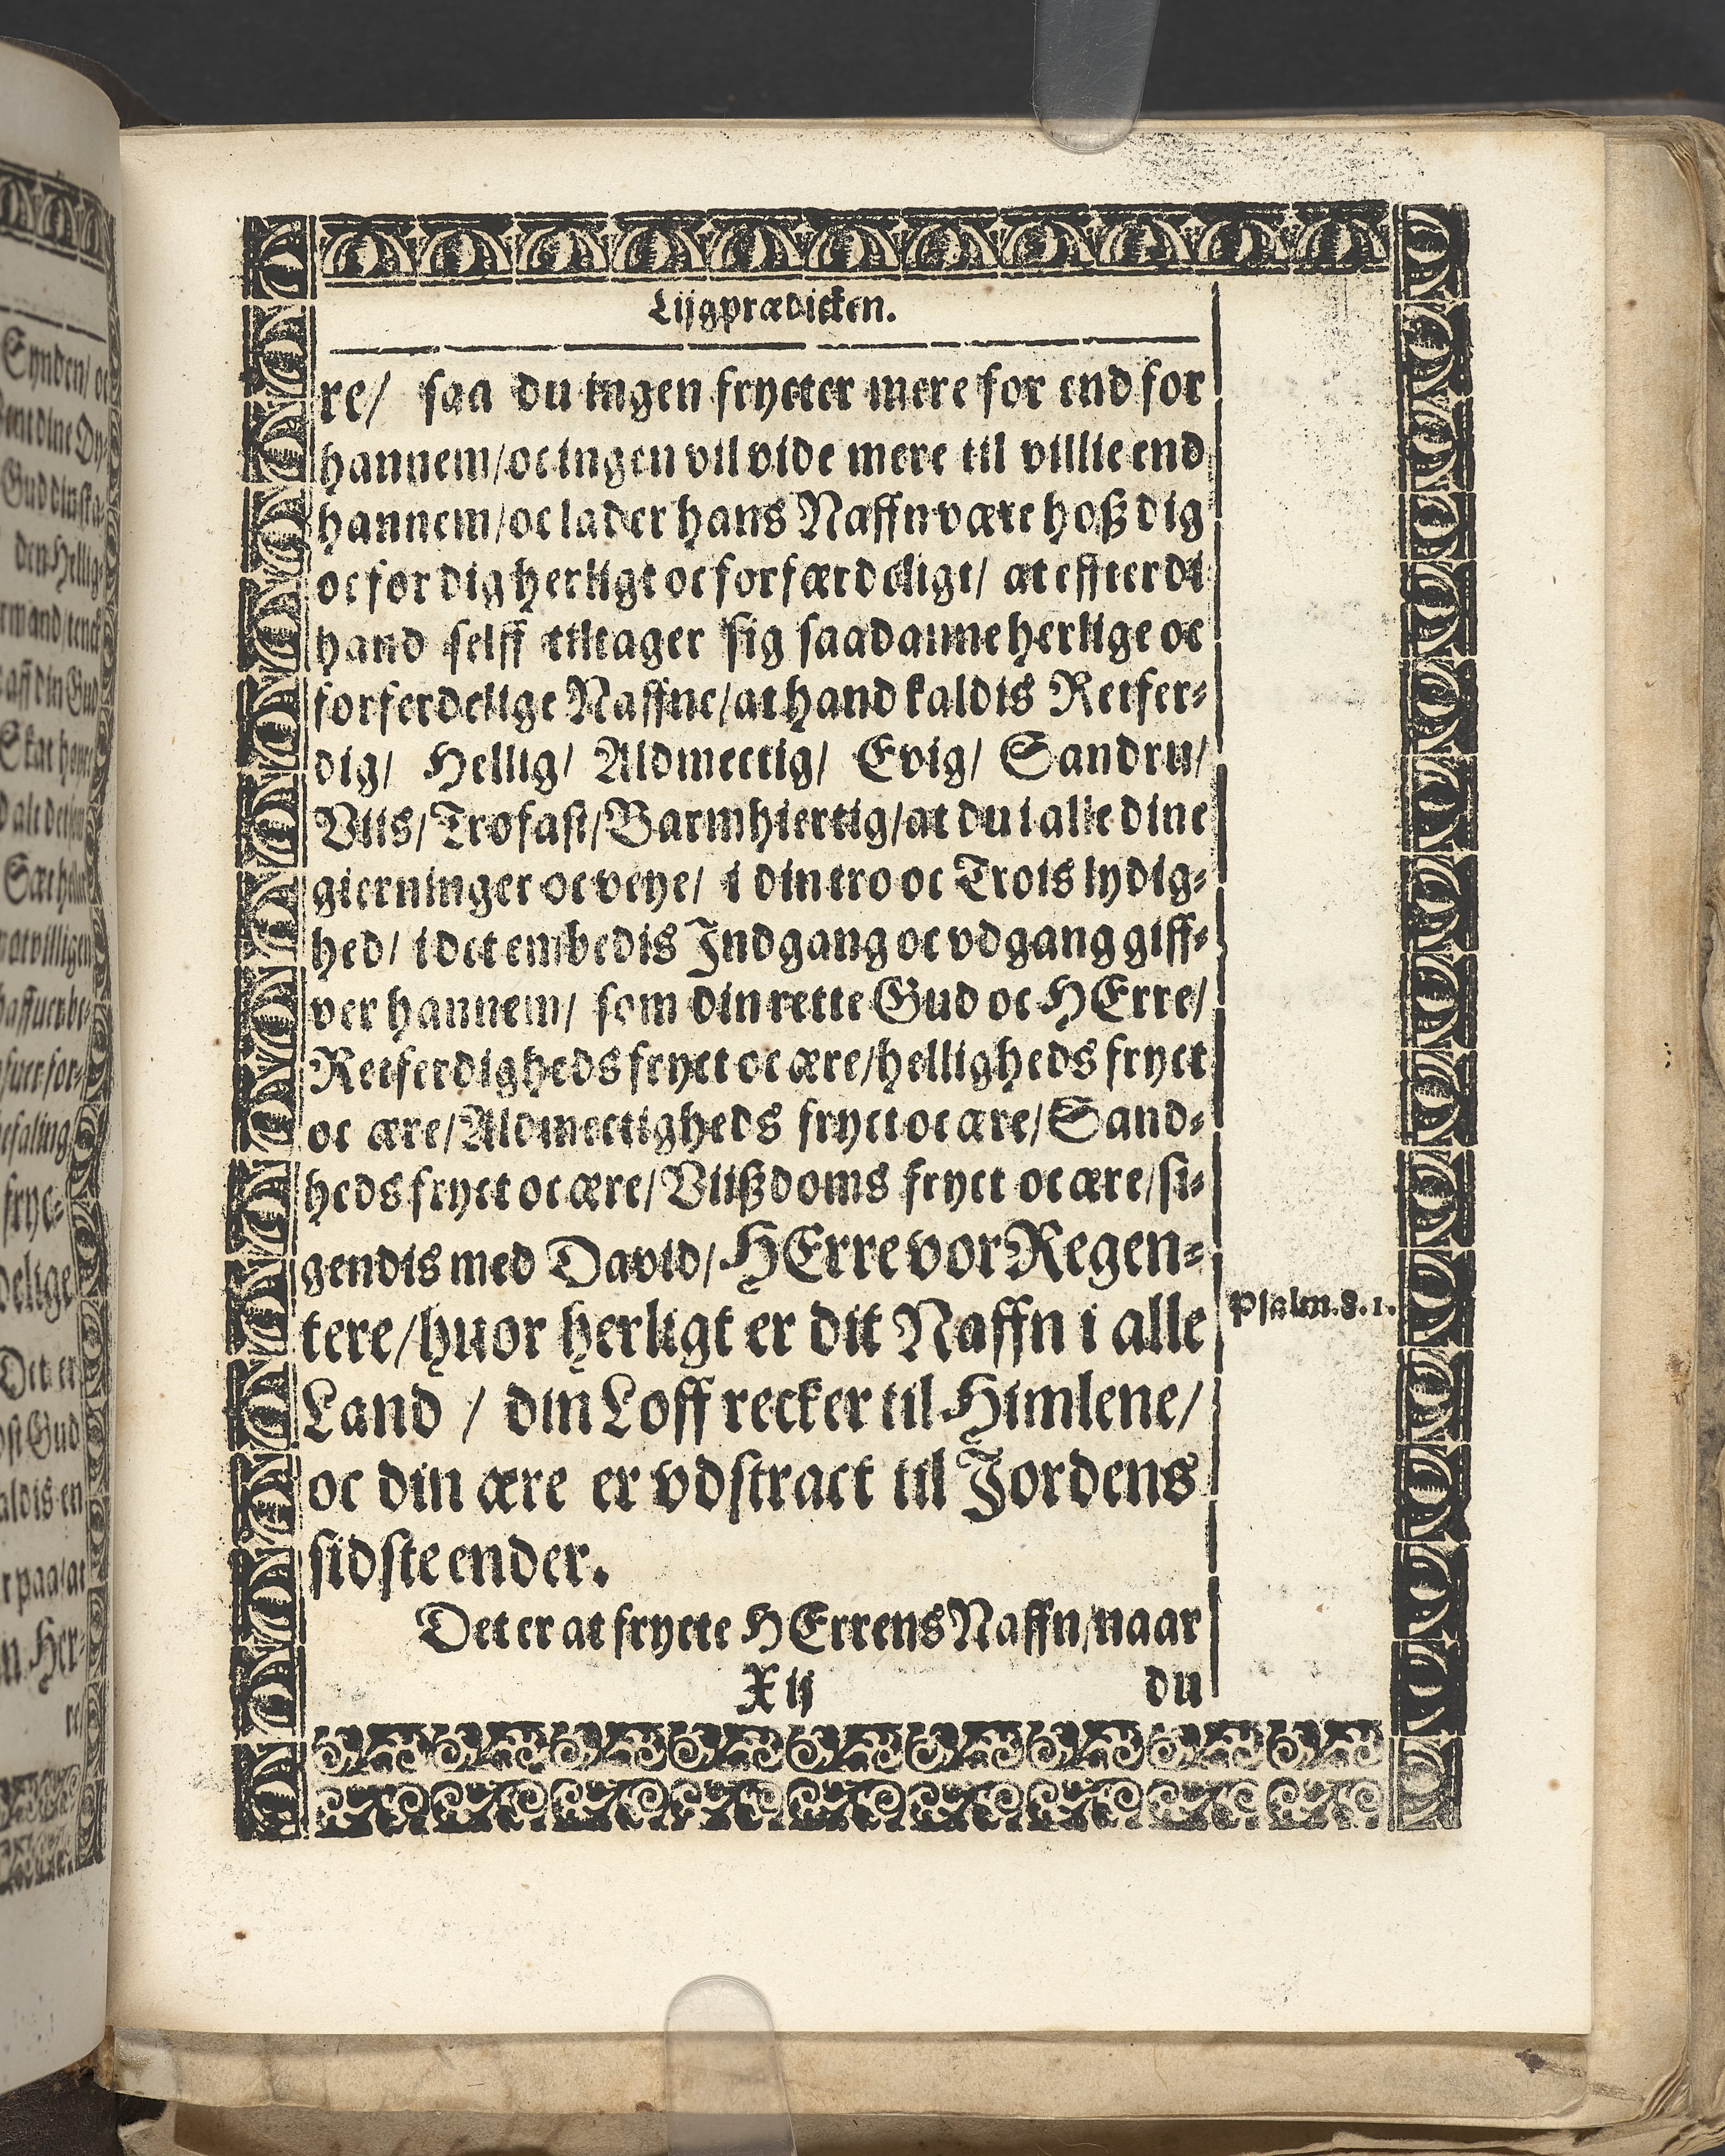 Lijgprædicken.
re/ saa du ingen frycter mere for end for
hannem/oc ingen vil vide mere til villie end
hannem/oc lader hans Naffn være hoß dig
oc for dig herligt oc forfærdeligt/ at effterdi
hand selff tiltager sig saadanne herlige oc
forferdelige Naffne/at hand kaldis Retfer-
dig/ Hellig/ Aldmectig/ Evig/ Sandru/
Viis/Trofast/Barmhiertig/at du i alle dine
gierninger oc veye/ i din tro oc Trois lydig-
hed/ i det embedis Indgang oc vdgang giff-
ver hannem/ som din rette Gud oc HErre/
Retferdigheds fryct oc ære/helligheds fryct
oc ære/Aldmectigheds fryct oc ære/Sand-
heds fryct oc ære/Viißdoms fryct oc ære/si-
gendis med David/HErre vor Regen-
tere/huor herligt er dit Naffn i alle
Psalm.8.1.
Land / din Loff recker til Himlene/
oc din ære er vdstract til Jordens
sidste ender.
Det er at frycte HErrens Naffn/naar
X ij
du